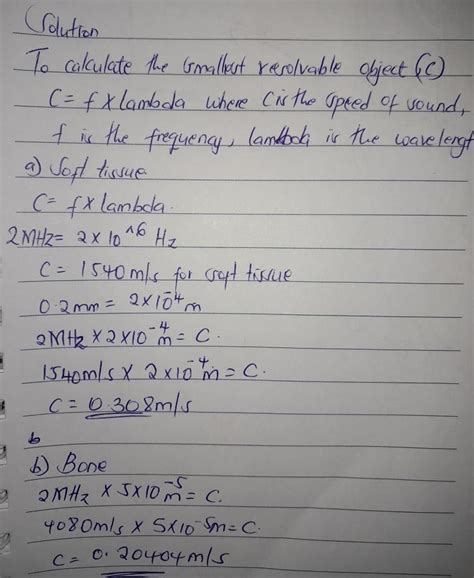 Solution
To calculate the smallest resolvable object (C)
C = f x lambda where C is the speed of sound,
f is the frequency, lambda is the wavelengt
a) Soft tissue
C = f x lambda.
2MHz = 2 x 10^6 Hz
C = 1540 m/s for soft tissue
0.2mm = 2x10⁻⁴m
2MHz x 2x10⁻⁴m = C.
1540m/s x 2x10⁻⁴m = C.
C = 0.308m/s
b
b) Bone
2MHz x 5x10⁻⁵m = C.
4080m/s x 5x10⁻⁵m = C.
C = 0.20404m/s